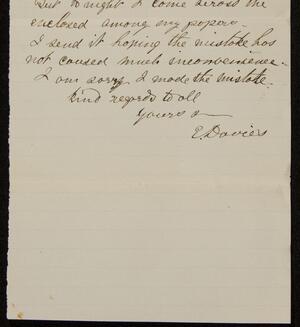 But to night I come across the
enclosed among my papers.
I send it hoping the mistake has
not caused much inconvenience.
I am sorry I made the mistake.
Kind regards to all
Yours &
E. Davies